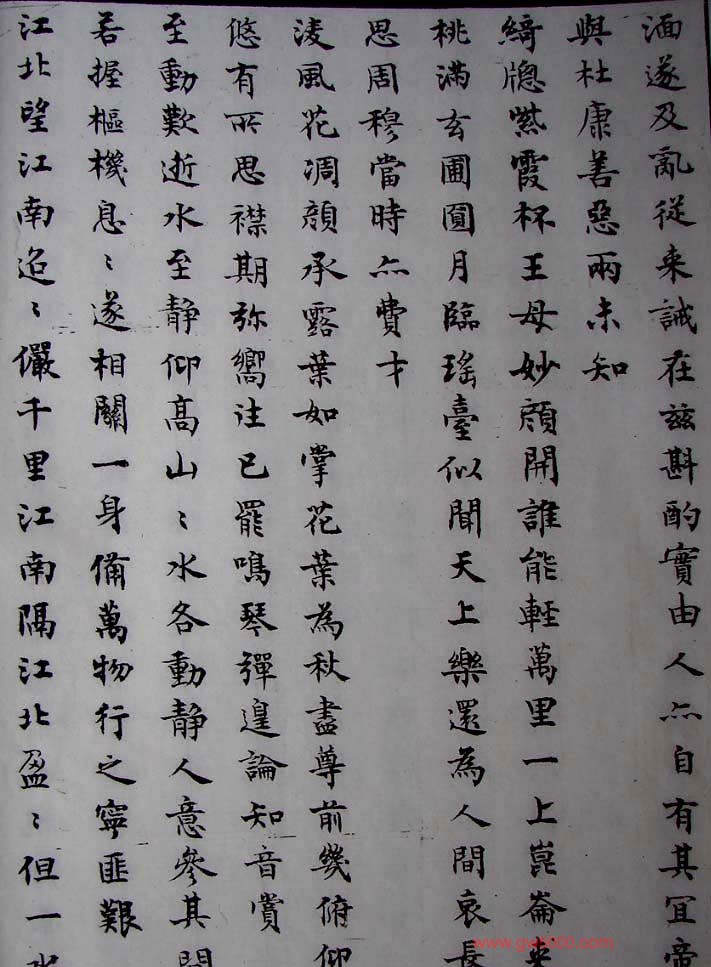 湎遂及亂従来誡在兹斟酌實由人亦自有其宜帝
與杜康善惡兩未知
綺牕紫霞杯王母妙顔開誰能輕萬里一上崑崙
桃滿玄圃圓月臨瑤臺似聞天上樂還為人間哀長
思周穆當時亦費才
淩風花凋顔承露葉如掌花葉為秋盡尊前幾俯仰
悠有所思襟期弥嚮往已罷鳴琴彈遑論知音賞
至動歎逝水至静仰髙山〻水各動静人意參其間
若握樞機息〻遂相關一身俻萬物行之寧匪艱
江北望江南迢〻儼千里江南隔江北盈〻但一水